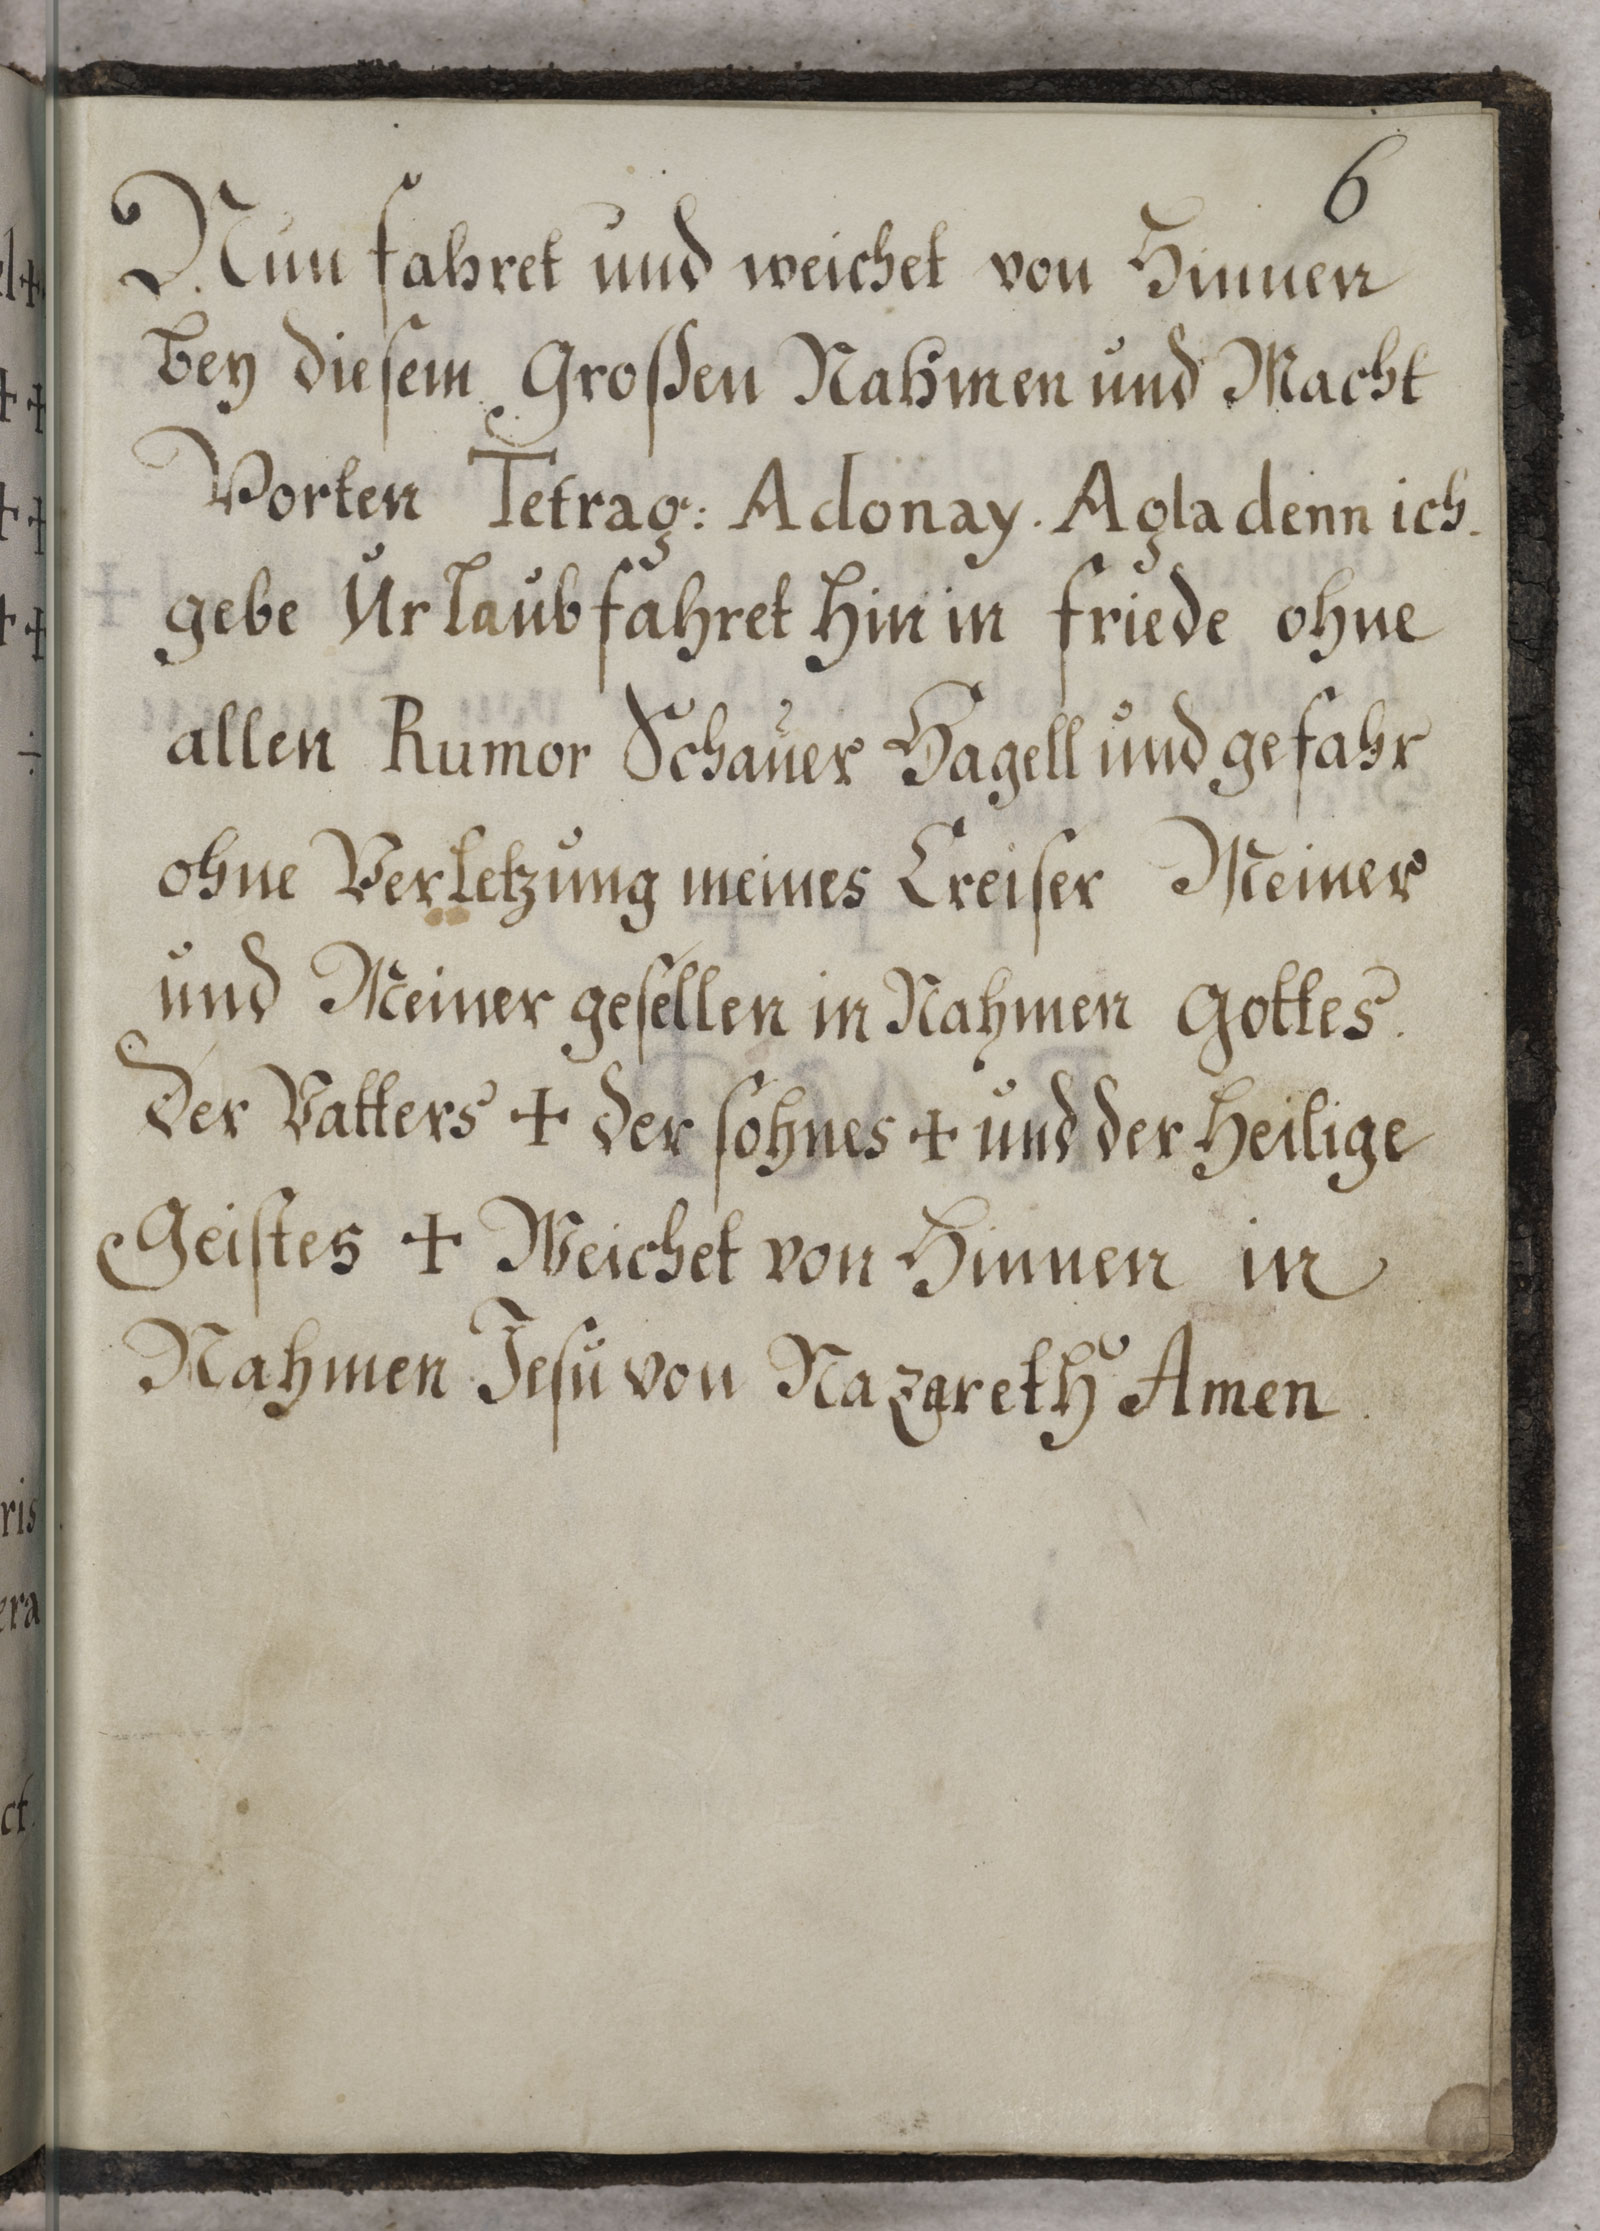 6
Nun fahret und weichet von Hinnen
bey diesem Großen Nahmen und Macht
Vorten Tetrag: Adonay. Agla denn ich.
gebe Urlaub fahret hin in friede ohne
allen Rumor Schauer Hagell und gefahr
ohne Verletzung meines Creiser Meiner
und Meiner gesellen in Nahmen Gottes.
Der Vatters + der sohnes + und der Heilige
Geistes + Weichet von Hinnen in
Nahmen Jesu von Nazareth Amen